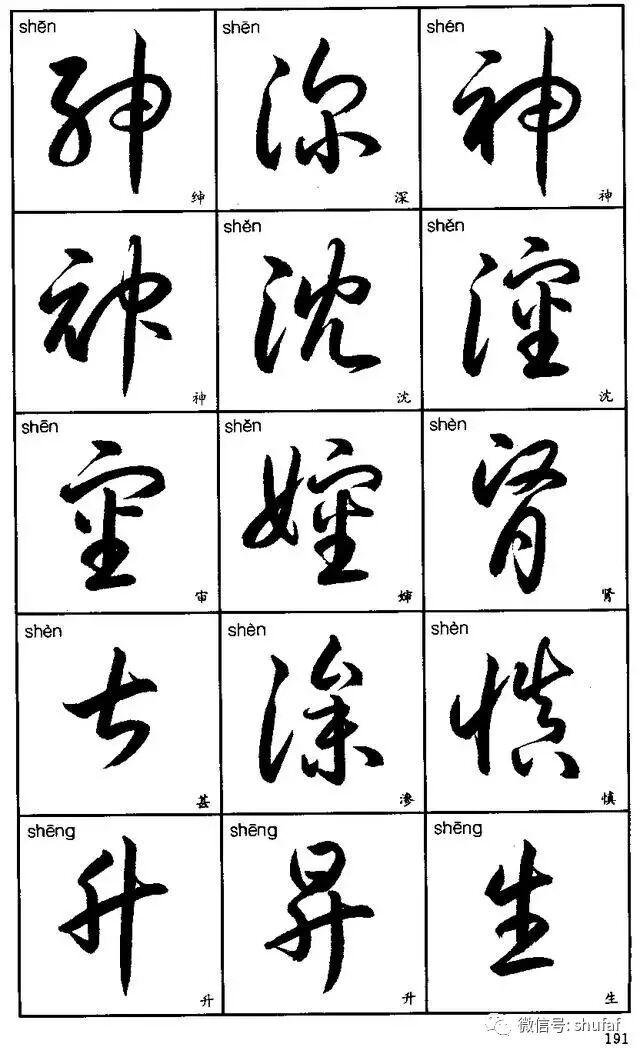 shēn shēn shén
绅 深 神
shěn shěn
神 沈 沈
shēn shěn shèn
审 婶 肾
shèn shèn shèn
甚 渗 慎
shēng shēng shēng
升 升 生
微信号: shufaf
191